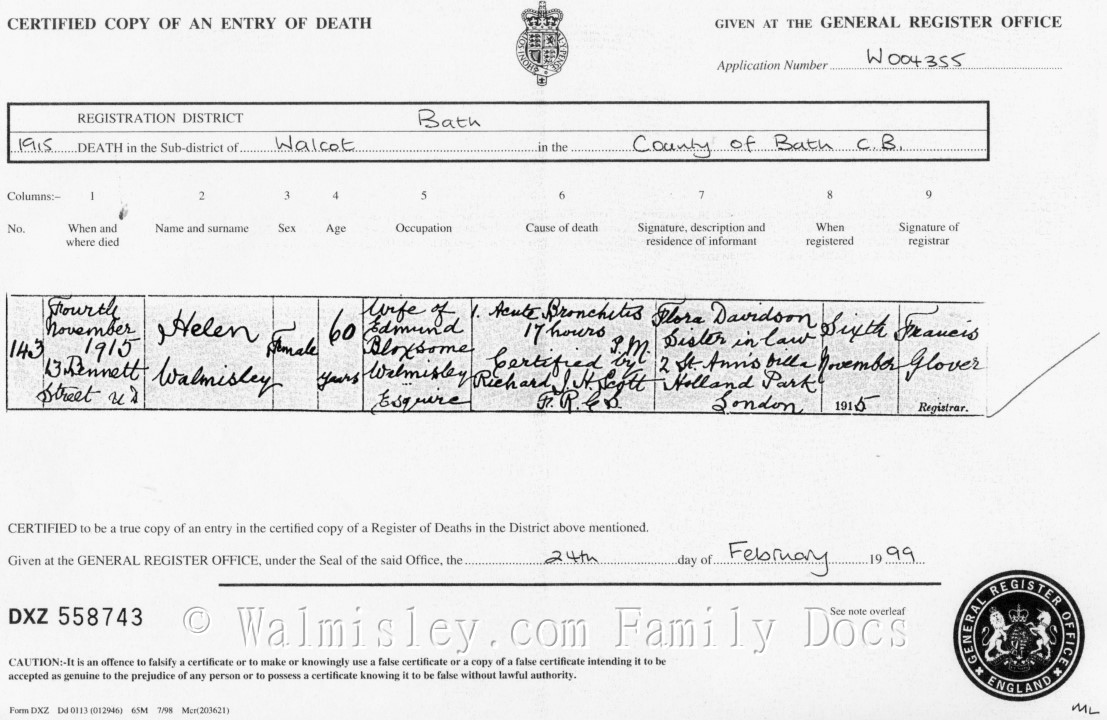 CERTIFIED COPY OF AN ENTRY OF DEATH
GIVEN AT THE GENERAL REGISTER OFFICE
Application Number W004355
REGISTRATION DISTRICT Bath
1915 DEATH in the Sub-district of Walcot in the County of Bath C.B.
Columns:- 1 2 3 4 5 6 7 8 9
No. When and where died Name and surname Sex Age Occupation Cause of death Signature, description and residence of informant When registered Signature of registrar
143
Fourth
November
1915
13 Bennett
Street
Helen
Walmisley
Female
60
years
Wife of
Edmund
Bloxsome
Walmisley
Esquire
1. Acute Bronchitis
17 hours
P.M
Certified by
Richard J. H. Scott
F.R.C.S.
Flora Davidson
Sister in law
2 St. Ann's Villa
Holland Park
London
Sixth
November
1915
Francis
Glover
Registrar.
CERTIFIED to be a true copy of an entry in the certified copy of a Register of Deaths in the District above mentioned.
Given at the GENERAL REGISTER OFFICE, under the Seal of the said Office, the 24th day of February 1999
DXZ 558743
See note overleaf
© Walmisley.com Family Docs
CAUTION:-It is an offence to falsify a certificate or to make or knowingly use a false certificate or a copy of a false certificate intending it to be
accepted as genuine to the prejudice of any person or to possess a certificate knowing it to be false without lawful authority.
GENERAL REGISTER OFFICE
ENGLAND
Form DXZ Dd 0113 (012946) 65M 7/98 Mcr(203621)
ML